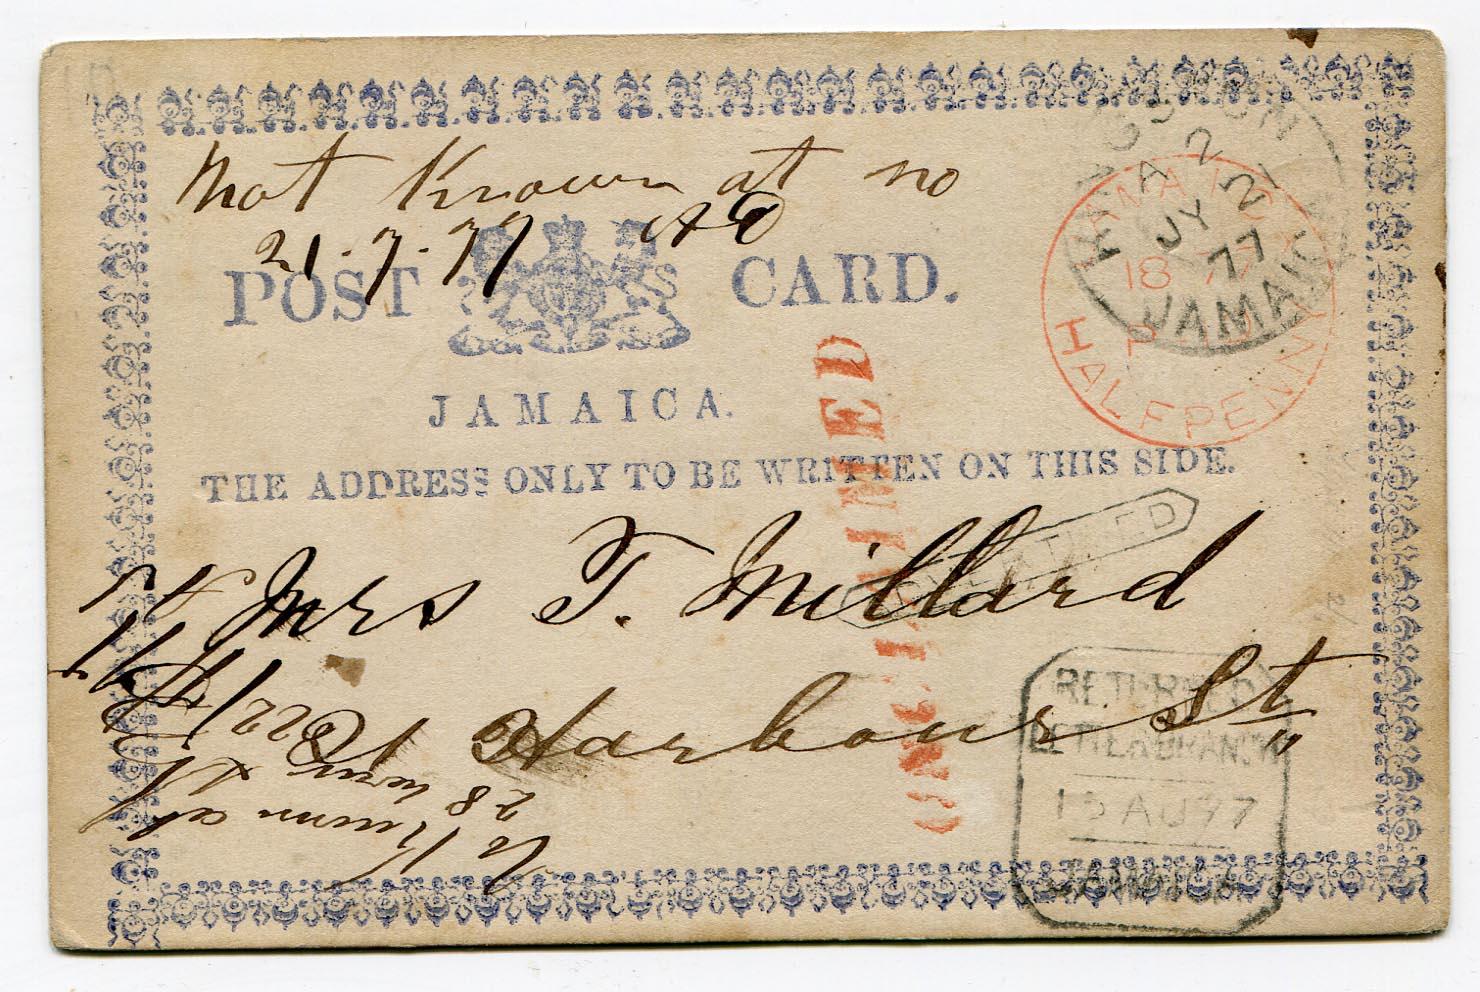 Not Known at no
21.7.77
POST CARD.
JAMAICA.
THE ADDRESS ONLY TO BE WRITTEN ON THIS SIDE.
KINGSTON
A 2
JY 21
77
JAMAICA
JAMAICA
1877
PAID
HALFPENNY
UNCLAIMED
ADVERTISED
Mrs T. Millard
Harbour St
RETURNED
LETTER BRANCH
15 AU 77
JAMAICA
Not Known at
28